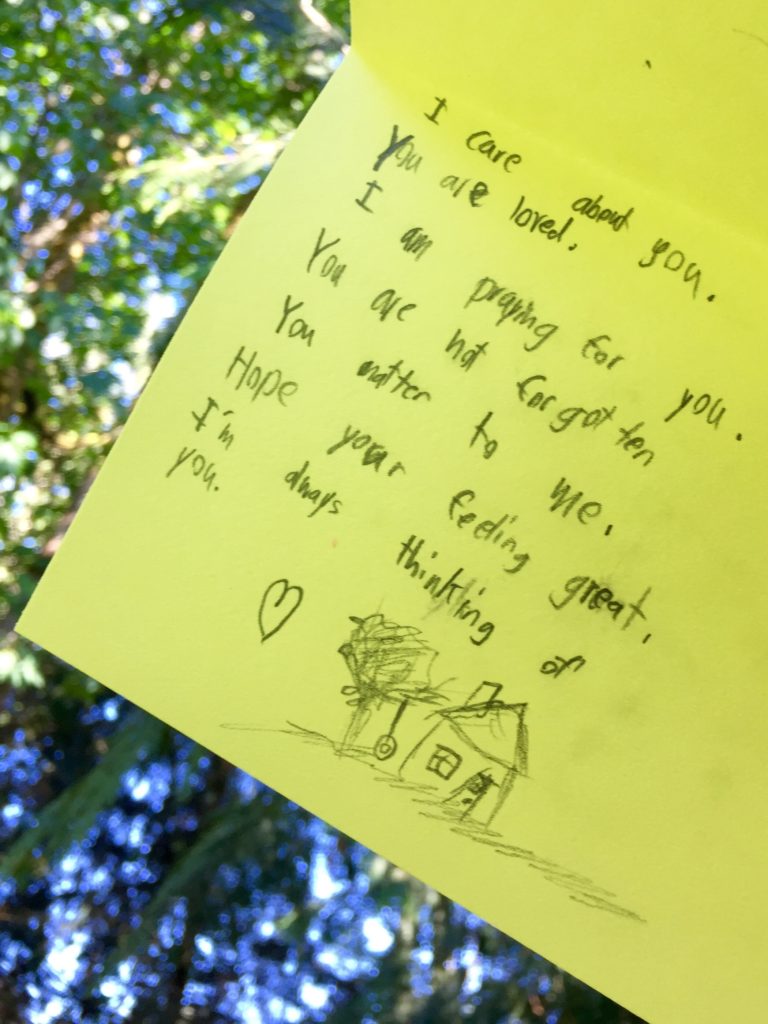 I care about you.
You are loved.
I am praying for you.
You are not forgotten
You matter to me.
Hope your feeling great,
I'm always thinking of
you.